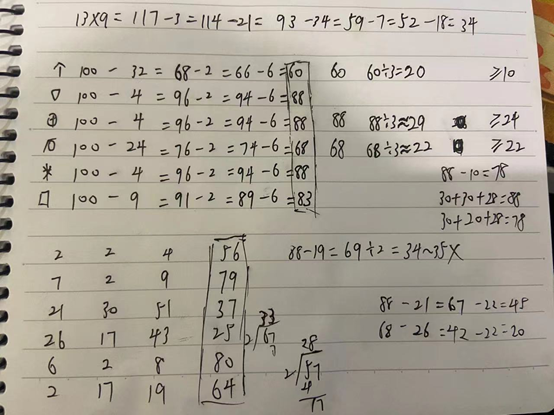 13×9 = 117-3 = 114-21 = 93-34 = 59-7 = 52-18 = 34
↑ 100 - 32 = 68-2 = 66-6 = 60 60 60÷3=20 ≥10
▽ 100 - 4 = 96-2 = 94-6 = 88
⊕ 100 - 4 = 96-2 = 94-6 = 88 88 88÷3≈29 ≥24
100 - 24 = 76-2 = 74-6 = 68 68 68÷3≈22 ≥22
* 100 - 4 = 96-2 = 94-6 = 88
88-10=78
□ 100 - 9 = 91-2 = 89-6 = 83
30+30+28=88
30+20+28=78
2 2 4 56 88-19=69÷2=34~35×
7 2 9 79
21 30 51 37 88-21=67-22=45
26 17 43 25 68-26=42-22=20
33
2/67
6 2 8 80
28
2/57
4
17
2 17 19 64